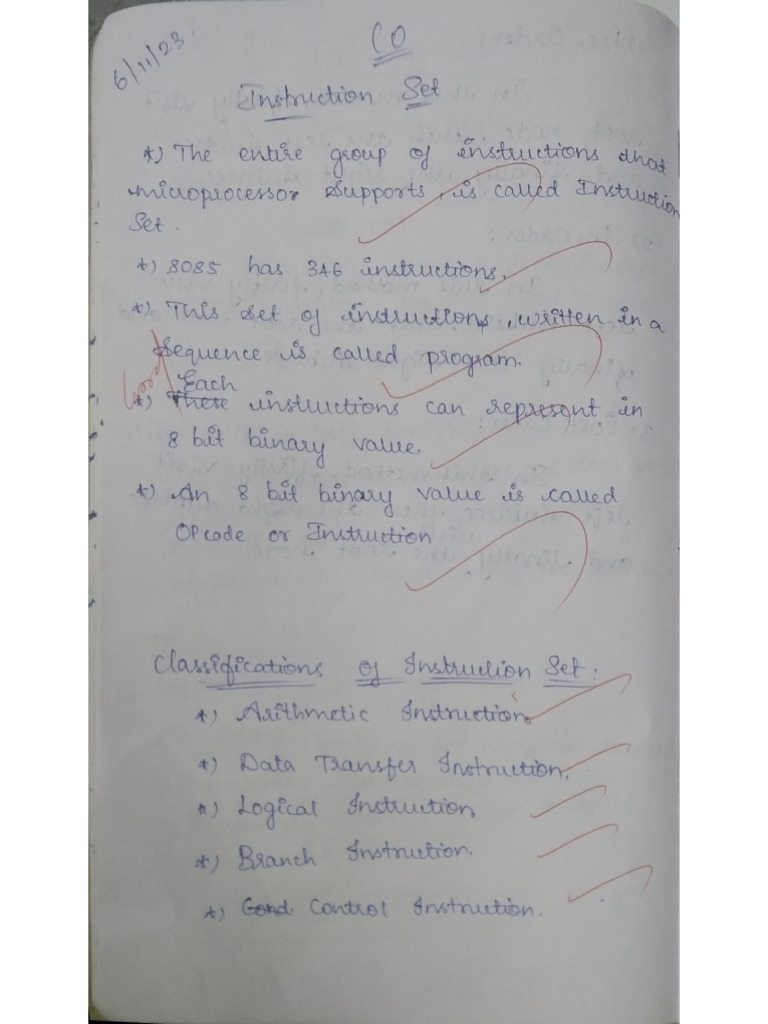 6/11/23
CO
Instruction Set
*) The entire group of instructions that
microprocessor supports, is called Instruction
Set.
*) 8085 has 346 instructions.
*) This set of instructions, written in a
sequence is called program.
Each
*) These instructions can represent in
8 bit binary value.
*) An 8 bit binary value is called
OPcode or Instruction
Classifications of Instruction Set:
*) Arithmetic Instruction.
*) Data Transfer Instruction.
*) Logical Instruction
*) Branch Instruction.
*) Cond Control Instruction.